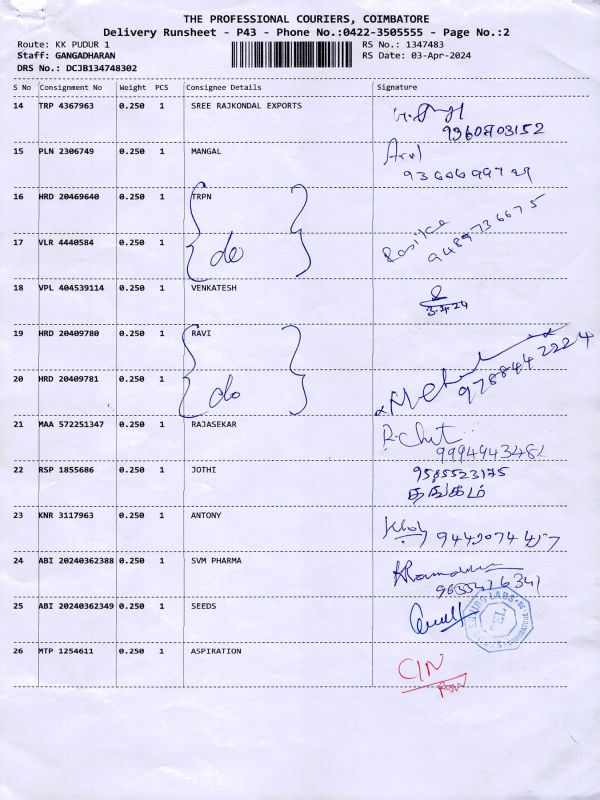 THE PROFESSIONAL COURIERS, COIMBATORE
Delivery Runsheet - P43 - Phone No.:0422-3505555 - Page No.:2
Route: KK PUDUR 1
RS No.: 1347483
Staff: GANGADHARAN
RS Date: 03-Apr-2024
DRS No.: DCJB134748302
S No Consignment No Weight PCS Consignee Details Signature
14 TRP 4367963 0.250 1 SREE RAJKONDAL EXPORTS
9360803152
15 PLN 2306749 0.250 1 MANGAL Arul
16 HRD 20469640 0.250 1 TRPN
9489736675
17 VLR 4440584 0.250 1 do
18 VPL 404539114 0.250 1 VENKATESH
3.4.24
19 HRD 20409780 0.250 1 RAVI
9788442224
20 HRD 20409781 0.250 1 do
21 MAA 572251347 0.250 1 RAJASEKAR
22 RSP 1855686 0.250 1 JOTHI 9585523175
தங்கம்
23 KNR 3117963 0.250 1 ANTONY
24 ABI 20240362388 0.250 1 SVM PHARMA
25 ABI 20240362349 0.250 1 SEEDS
26 MTP 1254611 0.250 1 ASPIRATION